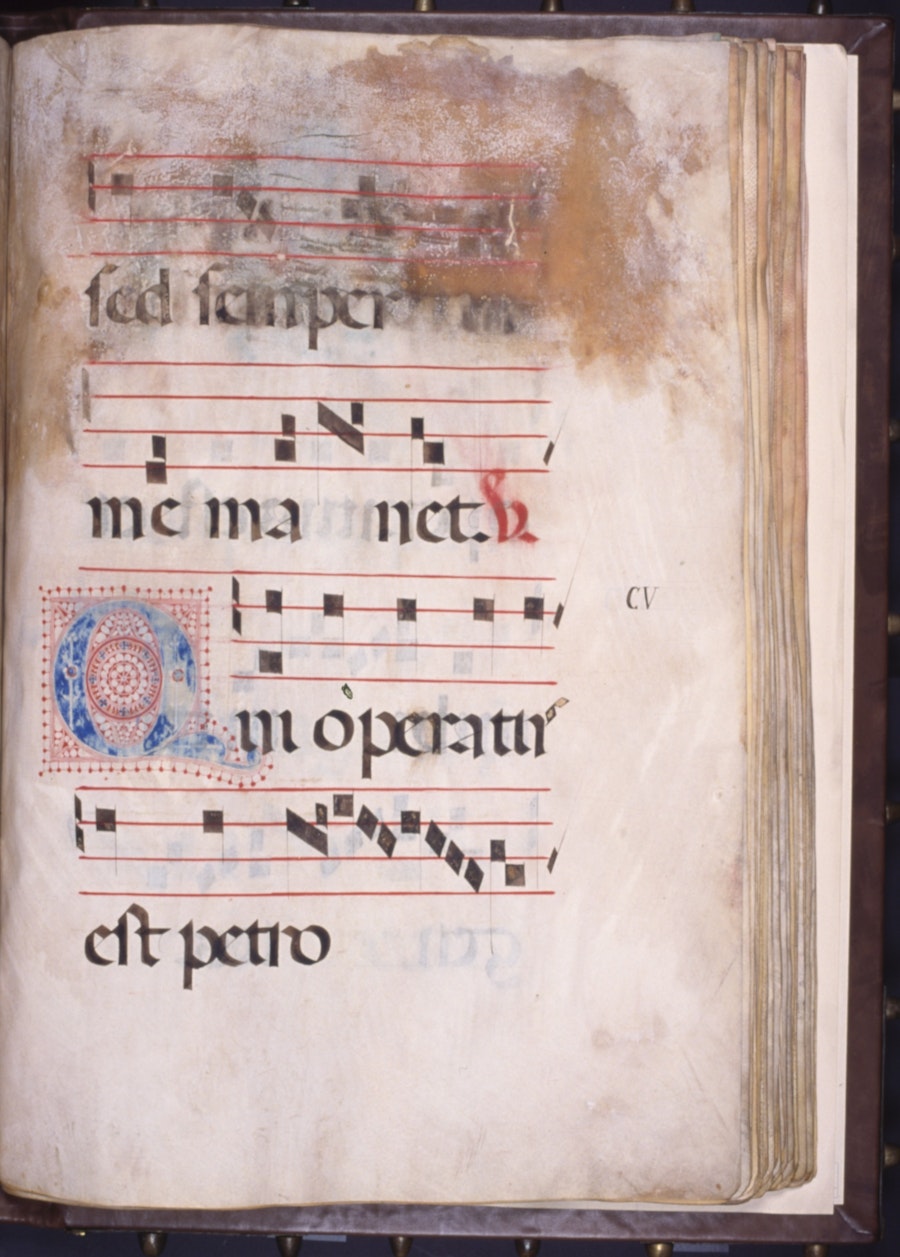 sed semper
me ma net. V.
CV
Qui operatur
est petro